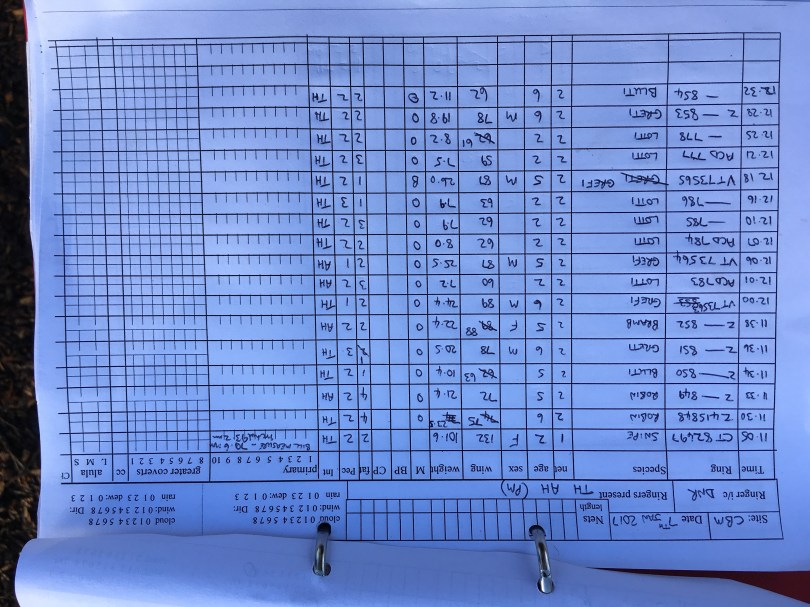 Site: CBM Date 7TH JAN 2017 Nets length
Ringer i/c DNR Ringers present TH AH (PM)
cloud 0 1 2 3 4 5 6 7 8 cloud 0 1 2 3 4 5 6 7 8
wind: 0 1 2 3 4 5 6 7 8 Dir: wind: 0 1 2 3 4 5 6 7 8 Dir:
rain 0 1 2 3 dew: 0 1 2 3 rain 0 1 2 3 dew: 0 1 2 3
Time Ring Species net age sex wing weight M BP CP fat Pec Int primary 1 2 3 4 5 6 7 8 9 10 greater coverts 8 7 6 5 4 3 2 1 cc alula L M S Cl
11.05 CT 82497 SNIPE 1 2 F 132 101.6 2 2 TH BILL MEASURE - 70.6 mm
11.30 Z415848 ROBIN 2 6 75 0 4 2 TH
11.33 Z — 849 ROBIN 2 5 72 21.4 4 2 AH
11.34 Z — 850 BLUTI 2 5 63 10.4 0 1 2 TH
11.36 Z — 851 GRETI 2 6 M 78 20.5 0 3 TH
11.58 Z — 852 BRAMB 2 5 F 88 22.4 0 2 2 AH
12.00 VT73563 GREFI 2 6 M 89 24.4 0 2 1 TH
12.01 ACD783 LOTTI 2 2 60 7.2 0 3 2 AH
12.06 VT 73564 GREFI 2 5 M 87 25.5 0 2 1 AH
12.07 ACD784 LOTTI 2 2 62 8.0 0 2 2 TH
12.10 — 785 LOTTI 2 2 62 7.9 0 3 2 TH
12.16 — 786 LOTTI 2 2 63 7.9 0 1 3 TH
12.18 VT73565 GREFI 2 5 M 87 26.0 B 1 2 TH
12.21 ACD 777 LOTTI 2 2 59 7.5 0 3 2 TH
12.25 — 778 LOTTI 2 2 61 8.2 0 2 2 TH
12.28 Z — 853 GRETI 2 6 M 78 19.8 0 2 2 TH
12.32 — 854 BLUTI 2 6 62 11.2 0 2 2 TH